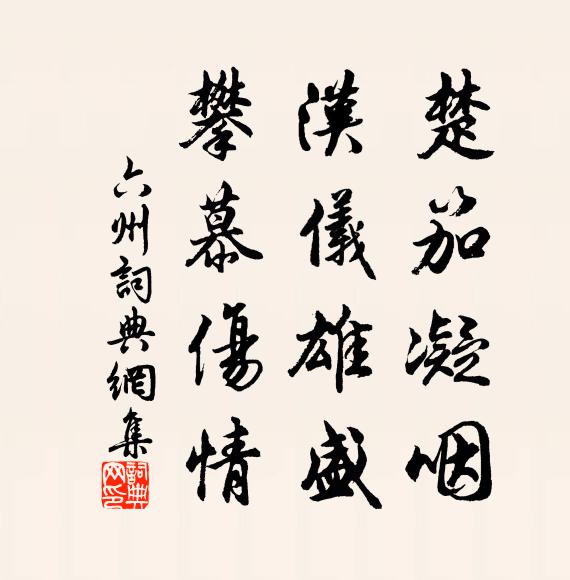 楚笳凝咽
漢儀雄盛
攀慕傷情
六州詞典網集
詞典网印